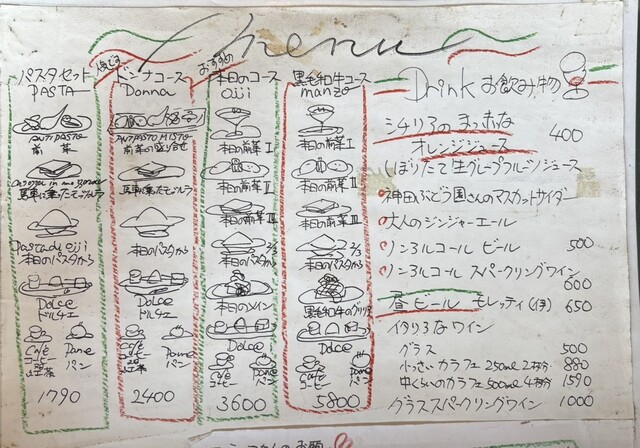 menu
パスタセット
PASTA
ANTIPASTO
前菜
馬車に乗ったモッツァレラ
Pasta di oiji
本日のパスタから
Dolce
ドルチェ
Café
コーヒー
紅茶
Pane
パン
1790
人気です
ドンナコース
Donna
ANTIPASTO MISTO
前菜の盛り合せ
馬車に乗ったモッツァレラ
本日のパスタから
Dolce
ドルチェ
Café
コーヒー
紅茶
Pane
パン
2400
おすすめ
本日のコース
oiji
本日の前菜 I
本日の前菜 II
本日の前菜 III
2/3
本日のパスタから
本日のメイン
Dolce
Café
コーヒー
Pane
パン
3600
黒毛和牛コース
manzo
本日の前菜 I
本日の前菜 II
本日の前菜 III
2/3
本日のパスタから
黒毛和牛のグリリア
Dolce
Café
コーヒー
Pane
パン
5800
Drink お飲み物
シチリアのまっかな
オレンジジュース 400
しぼりたて生グレープフルーツジュース
神田ぶどう園さんのマスカットサイダー
大人のジンジャーエール
ノンアルコール ビール 500
ノンアルコール スパークリングワイン
600
昼ビール モレッティ(伊) 650
イタリアなワイン
グラス 500
小っさいカラフェ 250ml 2杯分 880
中くらいのカラフェ 500ml 4杯分 1590
グラススパークリングワイン 1000